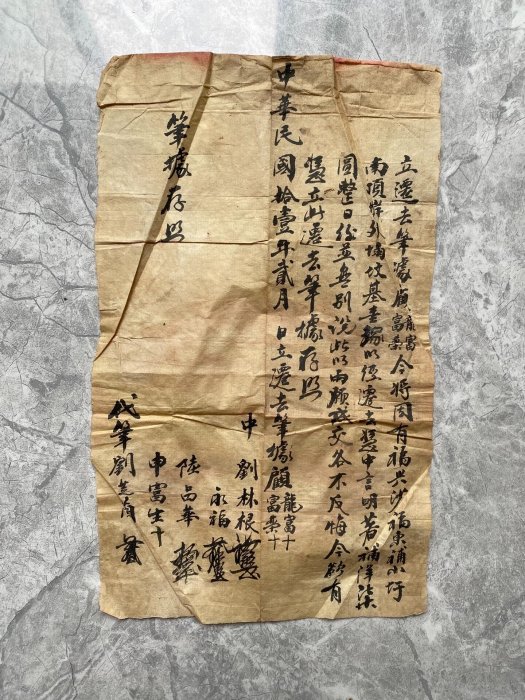 立遷去筆據顧龍富富桑今將因有福興沙福東補小圩
南頂岸外墒坟基壹揚以經遷去憑中言明著補洋柒
圓整日後並無別說此以兩願成交各不反悔今欲有
憑立此遷去筆據存照
中華民國拾壹年貳月 日立遷去筆據顧龍富十富桑十
中劉林根
永福
陸品華
申富生十
代筆劉
筆據存照